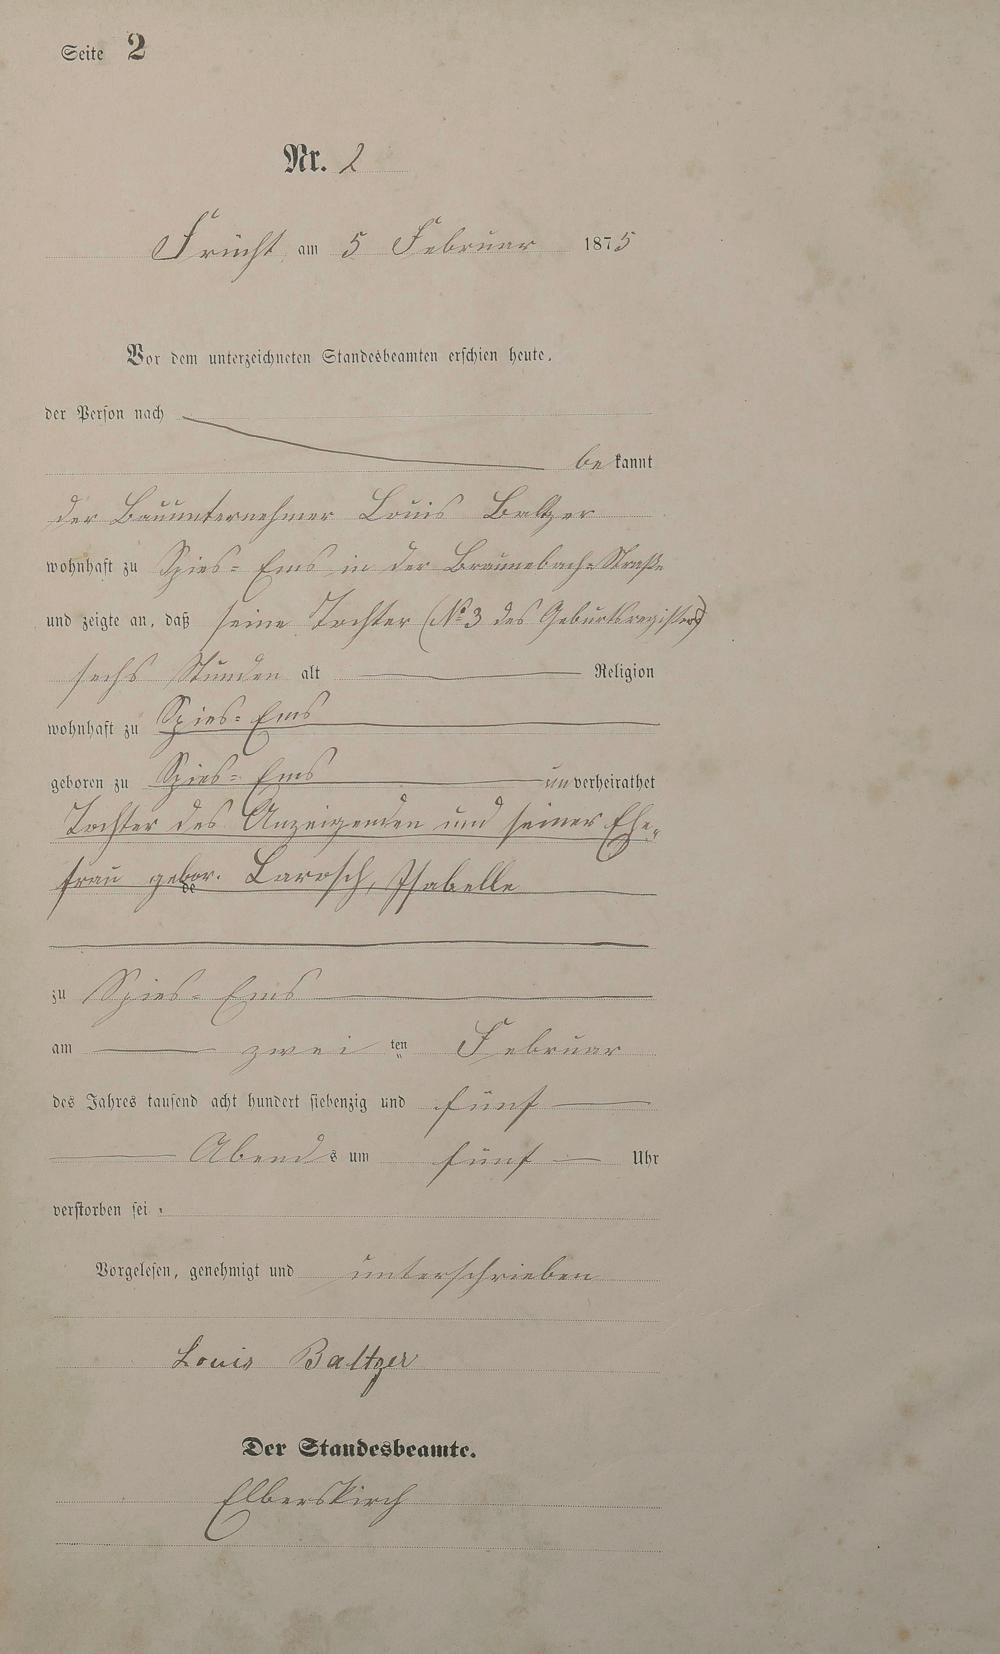 Seite 2
Nr. 2
Frücht am 5 Februar 1875
Vor dem unterzeichneten Standesbeamten erschien heute,
der Person nach
bekannt
der Bauunternehmer Louis Baltzer
wohnhaft zu Spies=Ems in der Braunebach=Straße
und zeigte an, daß seine Tochter (No 3 des Geburtsregisters)
sechs Stunden alt Religion
wohnhaft zu Spies=Ems
geboren zu Spies=Ems unverheirathet
Tochter des Anzeigenden und seiner Ehe=
frau gebor. de Larosch, Isabelle
zu Spies=Ems
am zweiten Februar
des Jahres tausend acht hundert siebenzig und fünf
Abends um fünf Uhr
verstorben sei.
Vorgelesen, genehmigt und unterschrieben
Louis Baltzer
Der Standesbeamte.
Elberskirch